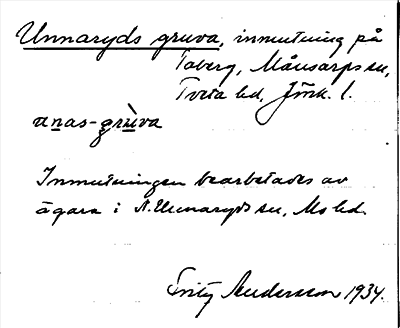 Unnaryds gruva, inmutning på
Taberg, Månsarps sn,
Tveta hd, Jönk. l.
unas-grùva
Inmutningen bearbetades av
ägara i N. Unnaryds sn, Mo hd.
Fritz Andersson 1934.